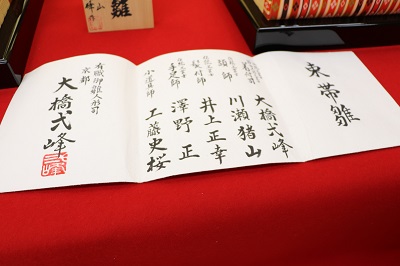 束帯雛
大橋弌峰
頭師
川瀬猪山
髪付師
井上正幸
手足師
澤野正
小道具師
工藤史桜
有職御雛人形司
京都
大橋弌峰
雛